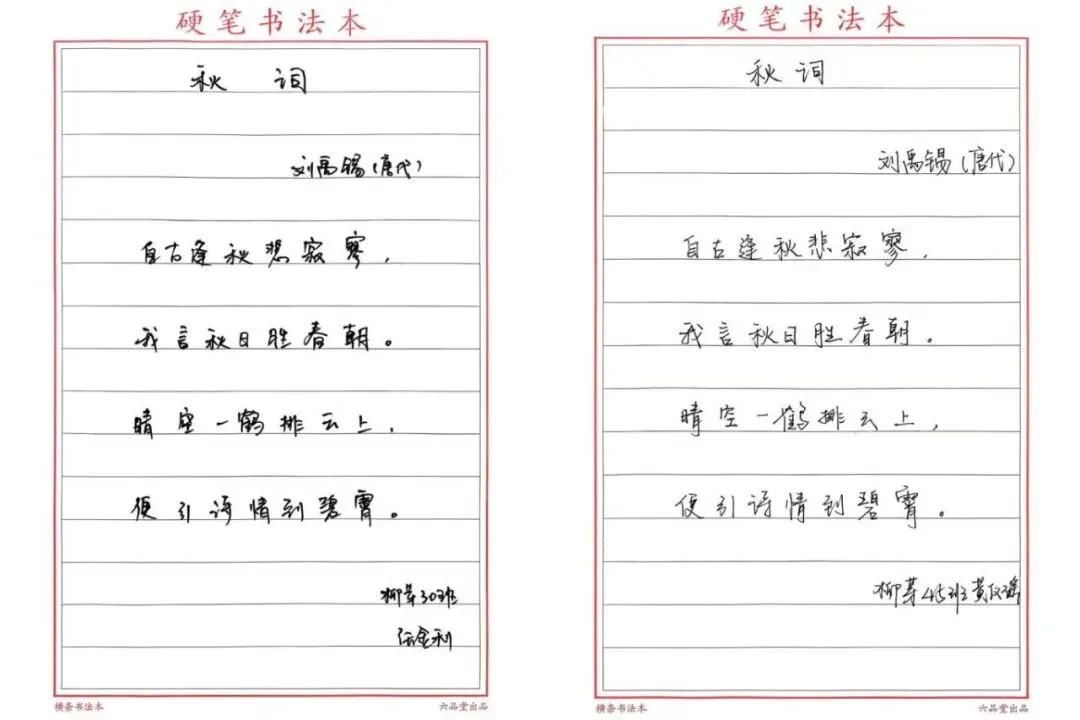 硬笔书法本
秋 词
刘禹锡（唐代）
自古逢秋悲寂寥，
我言秋日胜春朝。
晴空一鹤排云上，
便引诗情到碧霄。
柳芽30班
伍金利
横条书法本
六品堂出品
硬笔书法本
秋词
刘禹锡（唐代）
自古逢秋悲寂寥，
我言秋日胜春朝。
晴空一鹤排云上，
便引诗情到碧霄。
柳芽45班黄仪瑶
横条书法本
六品堂出品